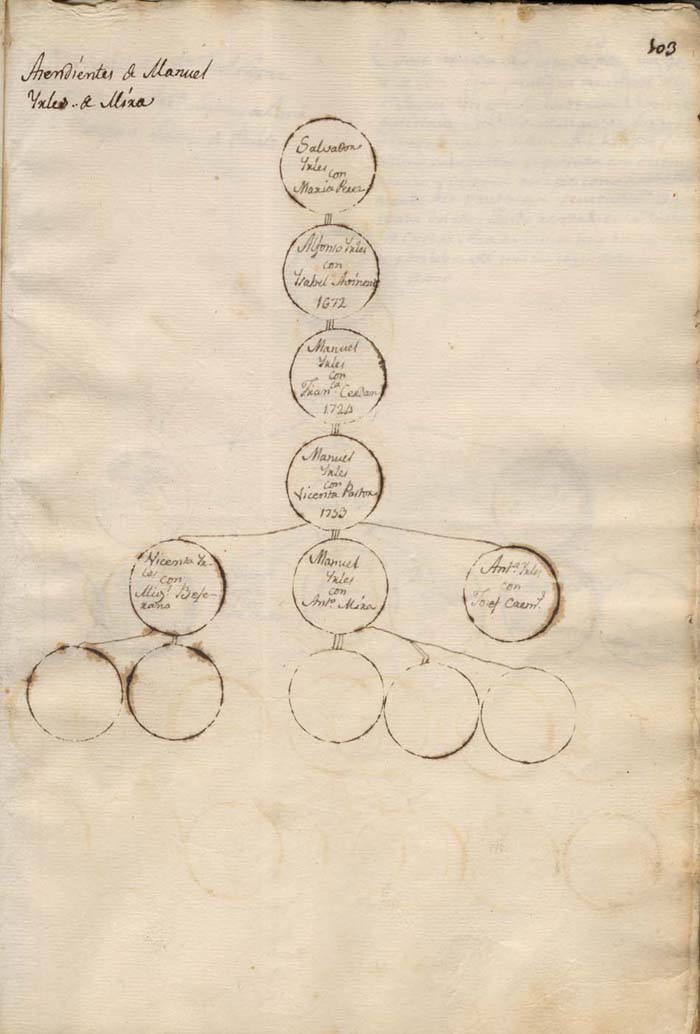 103
Asendientes de Manuel
Yrles.. de Mira
Salvador
Yrles
con
Maria Perez
Alfonso Yrles
con
Ysabel
1672
Manuel
Yrles
con
Fran.ca Cerdan
Manuel
Yrles
con
Vicenta Pastor
1753
Vicenta Yr-
les
con
Mig.l Beje-
rano
Manuel
Yrles
con
Ant.a Mira
Ant.a Yrles
con
Josef